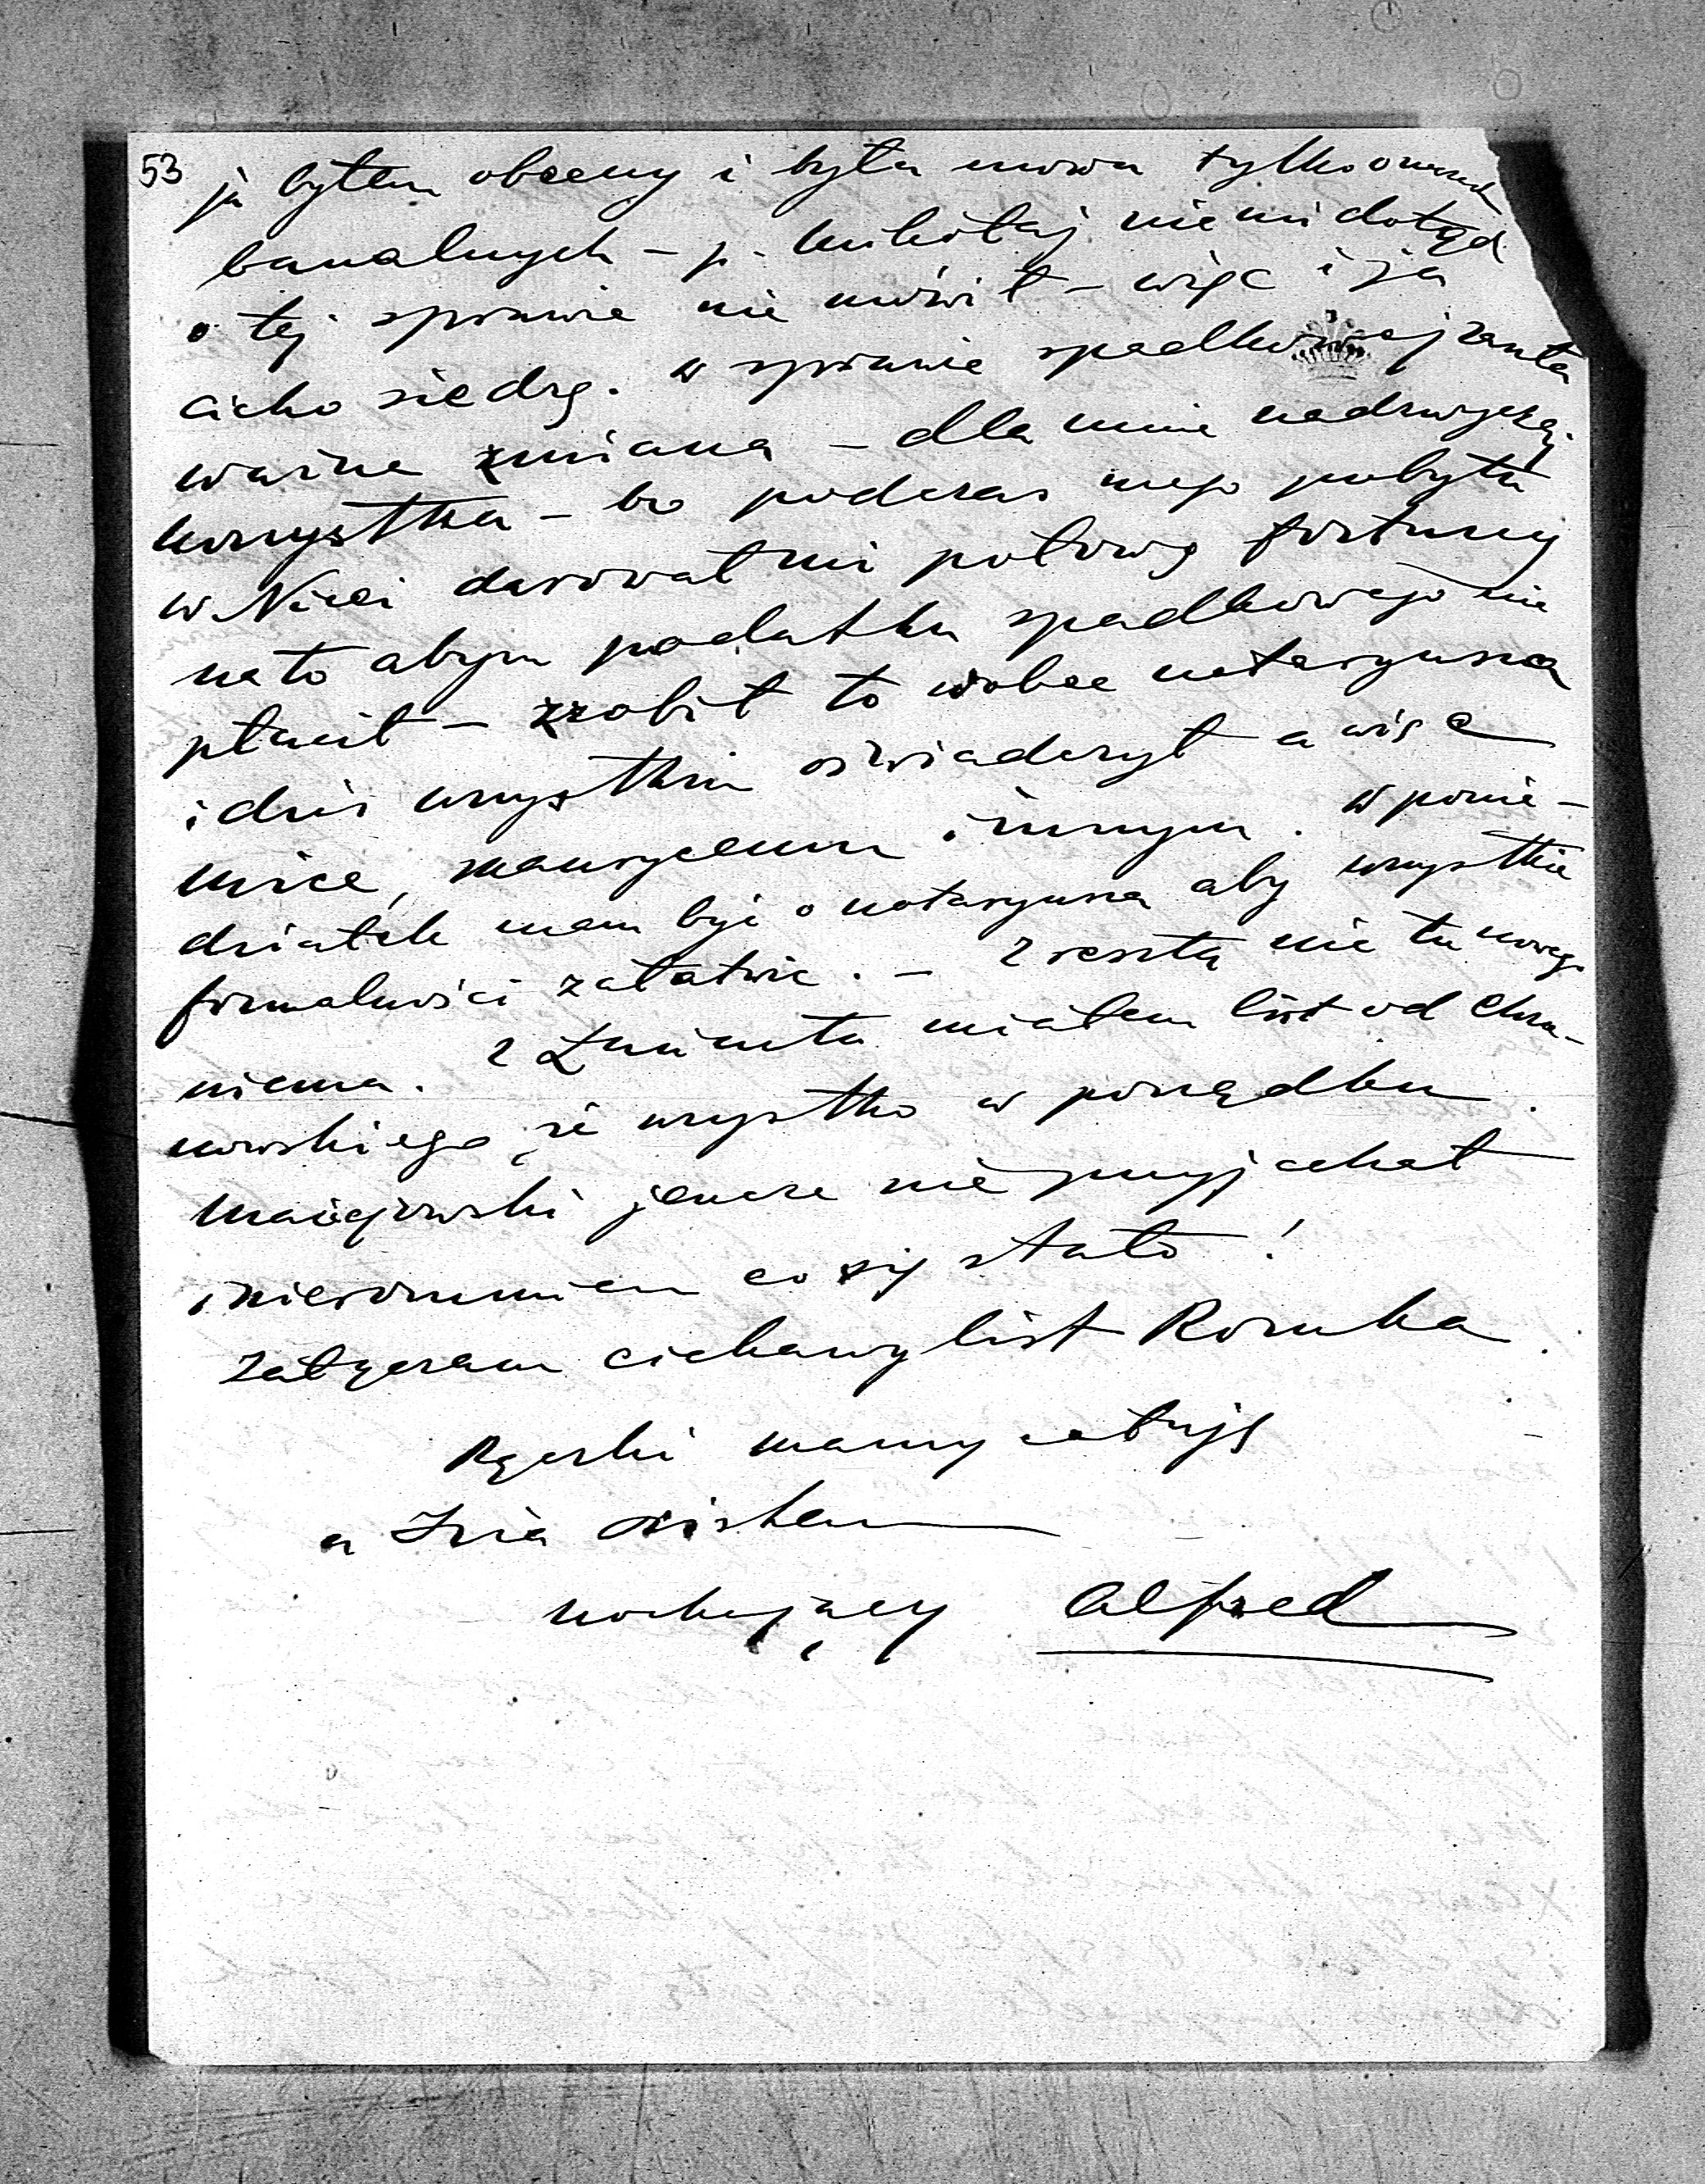 53
ja byłem obecny i była mowa tylko o
banalnych – p. Mikołaj nie mi dotąd
o tej sprawie nie mówił – więc i ja
cicho siedzę. W sprawie spadkowej zaszła
ważna zmiana – dla mnie nadzwyczaj
korzystna – bo podczas mego pobytu
w Nicei darował mi połowę fortuny
na to abym podatku spadkowego nie
płacił – zrobił to wobec notaryusza
i dziś wszystkim oświadczył a więc
mnie, Maurycemu i innym. W ponie-
działek mam być o notaryusza aby wszystkie
formalności załatwić. – Zresztą nic tu nowego
niema. Z Łańcuta miałem list od Chra-
nowskiego, że wszystko w porządku.
jeszcze nie przyjechał
i nierozumiem co się stało!
Załączam ciekawy list Rozuka.
Rączki mamy całuję
a Izia ściskam
kochający Alfred